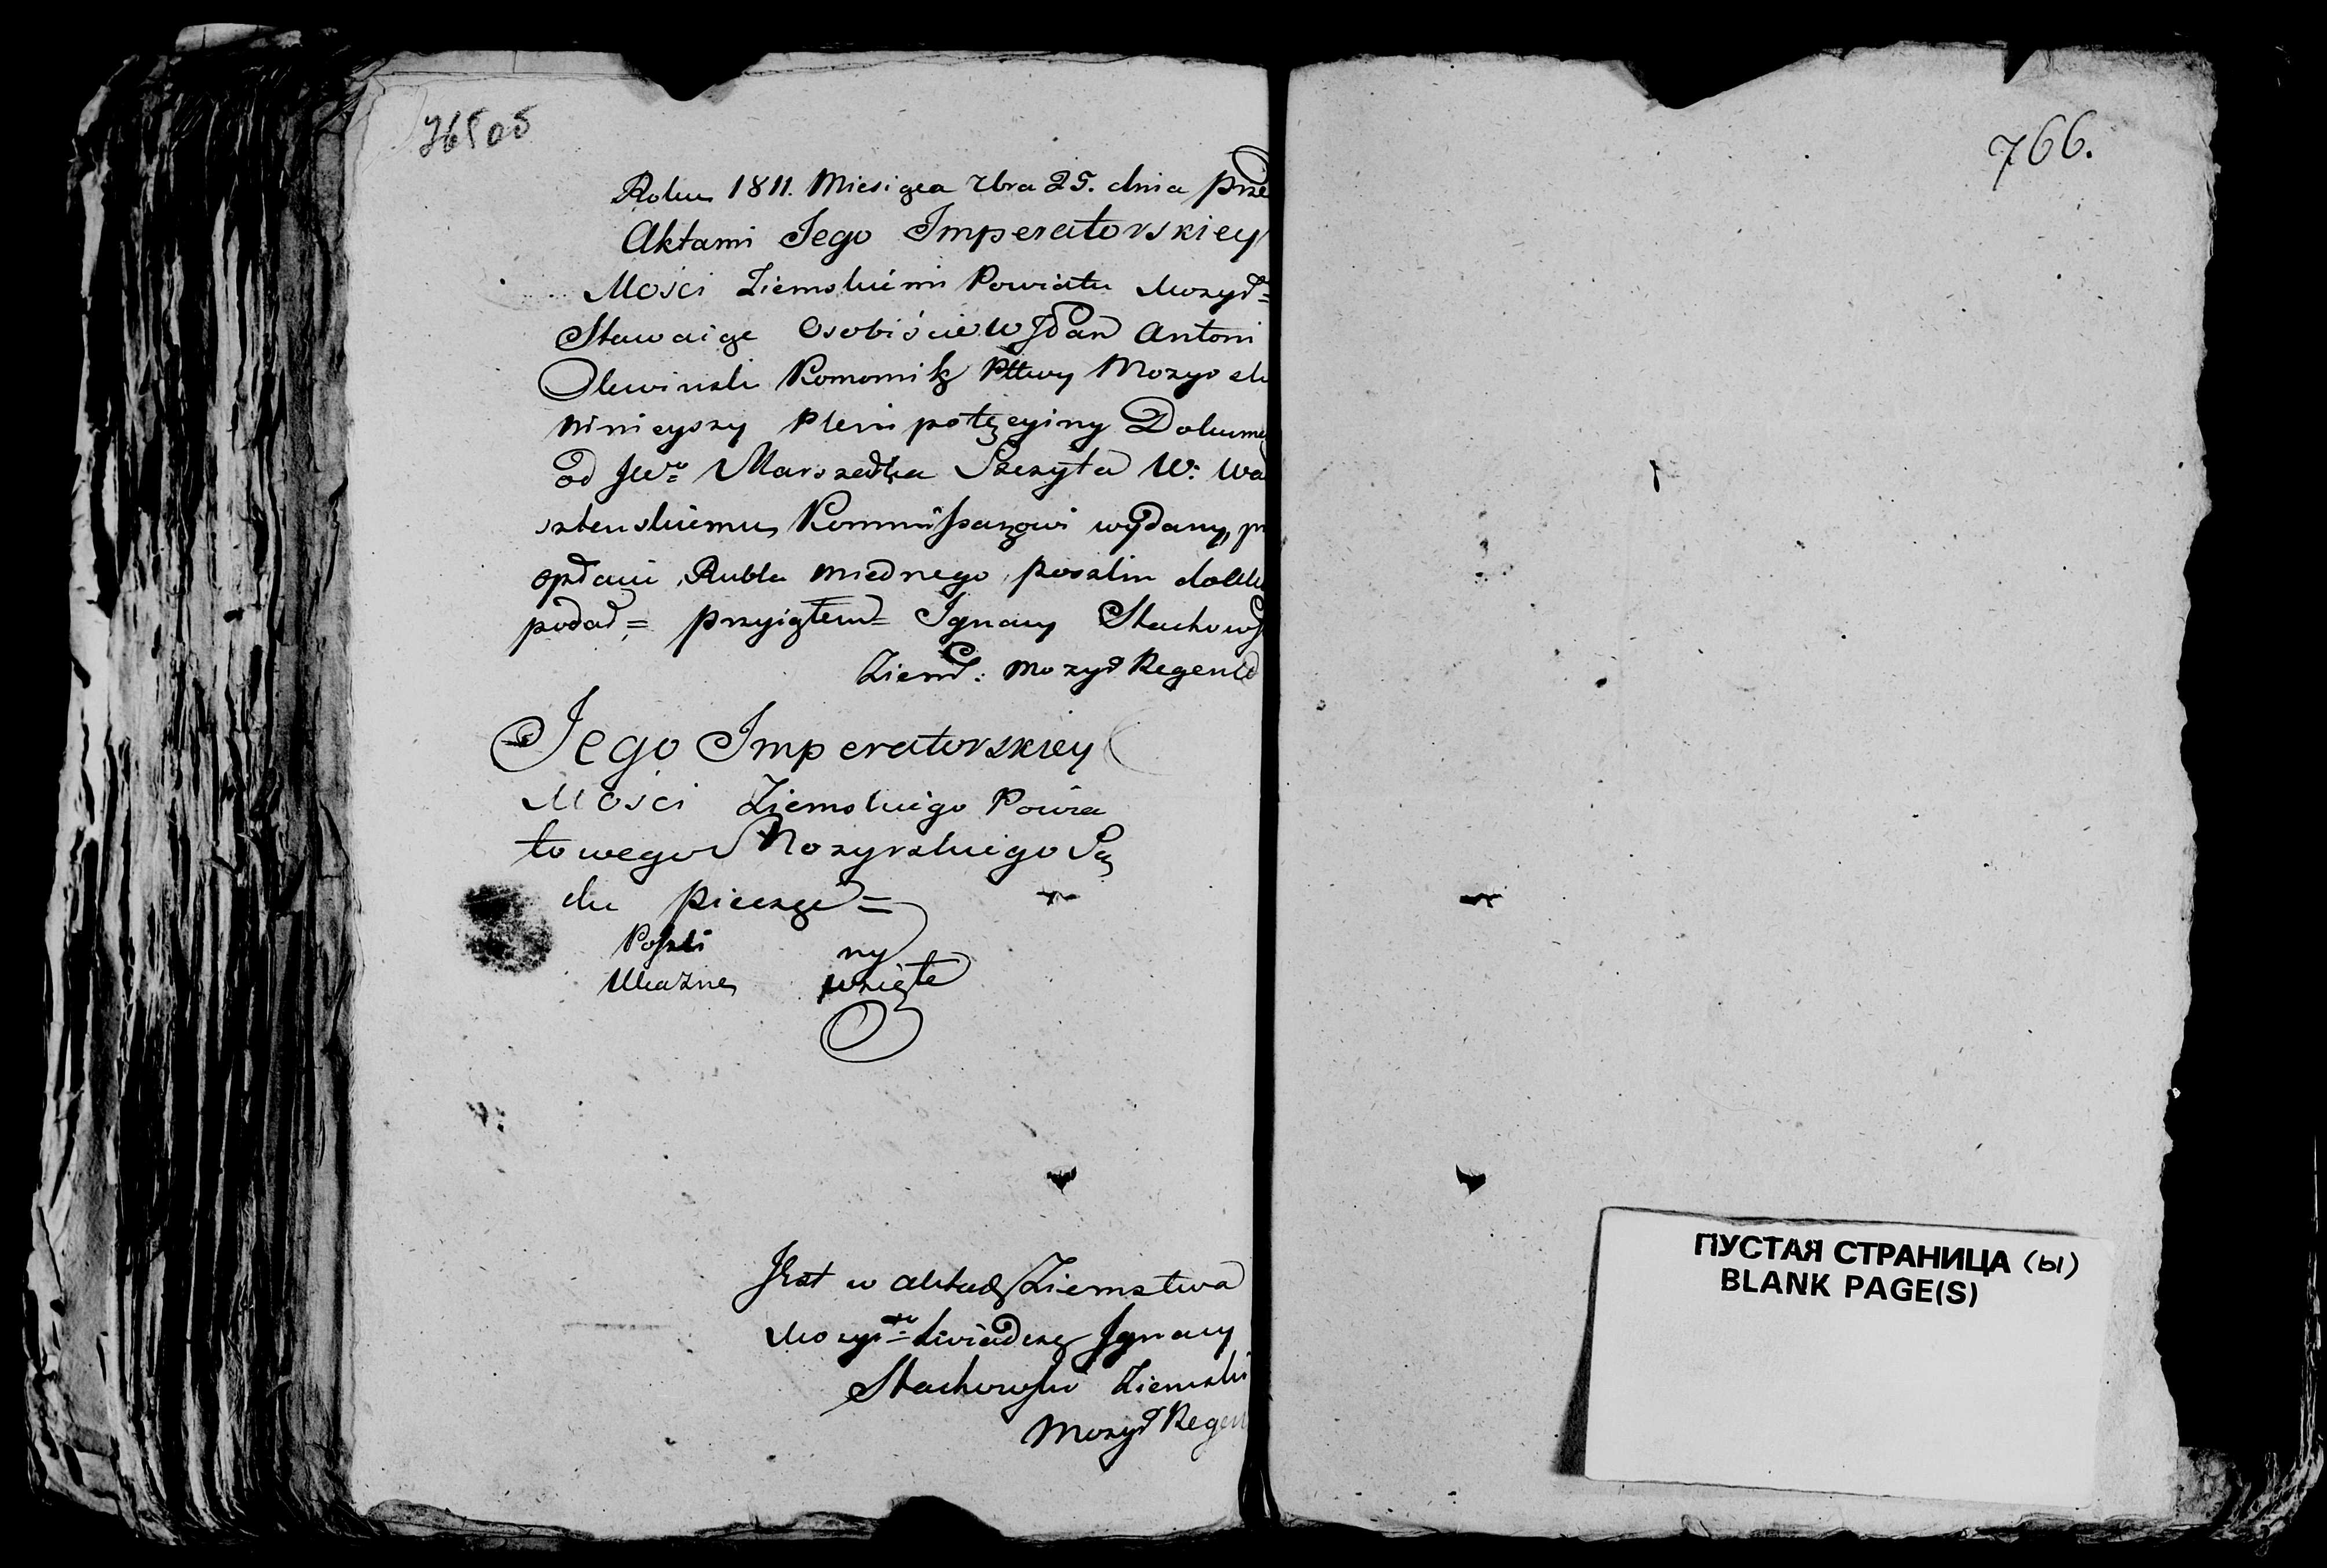 765об
Roku 1811. Miesiąca 7bra 25. dnia prze
Aktami Jego Imperatorskiey
Mości Ziemskiemi Powiatu Mozyr=
Stawaiąc Osobiście W Jdan Antoni
Olewinski Komornik Pttwy Mozyrsk
ninieyszy Plenipotęcyiny Dokume
od JWo= Marszałka Szczyta W: Wa
sztenskiemu Kommissarzowi wydany, pr
opłacie Rubla miednego, poszlin do Akt
podał= przyiąłem= Ignacy Stachows
Ziem: Mozyr Regent
Jego Imperatorskiey
Mości Ziemskiego Powia
towego Mozyrskiego Są
du pieczęć=
Poszli ny
Ukazne wzięte
Jest w aktach Ziemstwa
Mozyr= świadczę Ignacy
Stachowski Ziemski
Mozyr Regen
766.
ПУСТАЯ СТРАНИЦА (Ы)
BLANK PAGE(S)